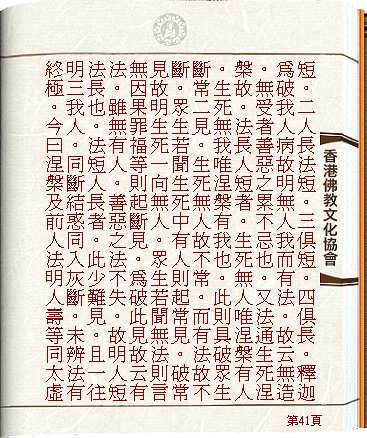 短。二人長法短。三俱短。四俱長。釋迦
爲破我人病故明無人我而有法。故云無造
。無受者善惡之累不忌也。又法通生死涅
槃故。法長人短者。生死無人唯涅槃有人
。生死無我唯涅槃有我也。此則具破眾生
斷常二見。生死無人故不常。而有法故不
斷。眾生若聞生死中有人則起常見。破常
見故明生死一向無人。眾生若聞無法則言
無因果罪福等則起斷見。爲破此見故云有
法。雖無有人。善惡之法不失。故明人短
法長也。法短人長者。此少難見。且一往
明三我人。同斷結惑同入灰斷。未辨法有
終極。今曰涅槃及前人法明人壽等同太虛
香港佛教文化協會
第41頁